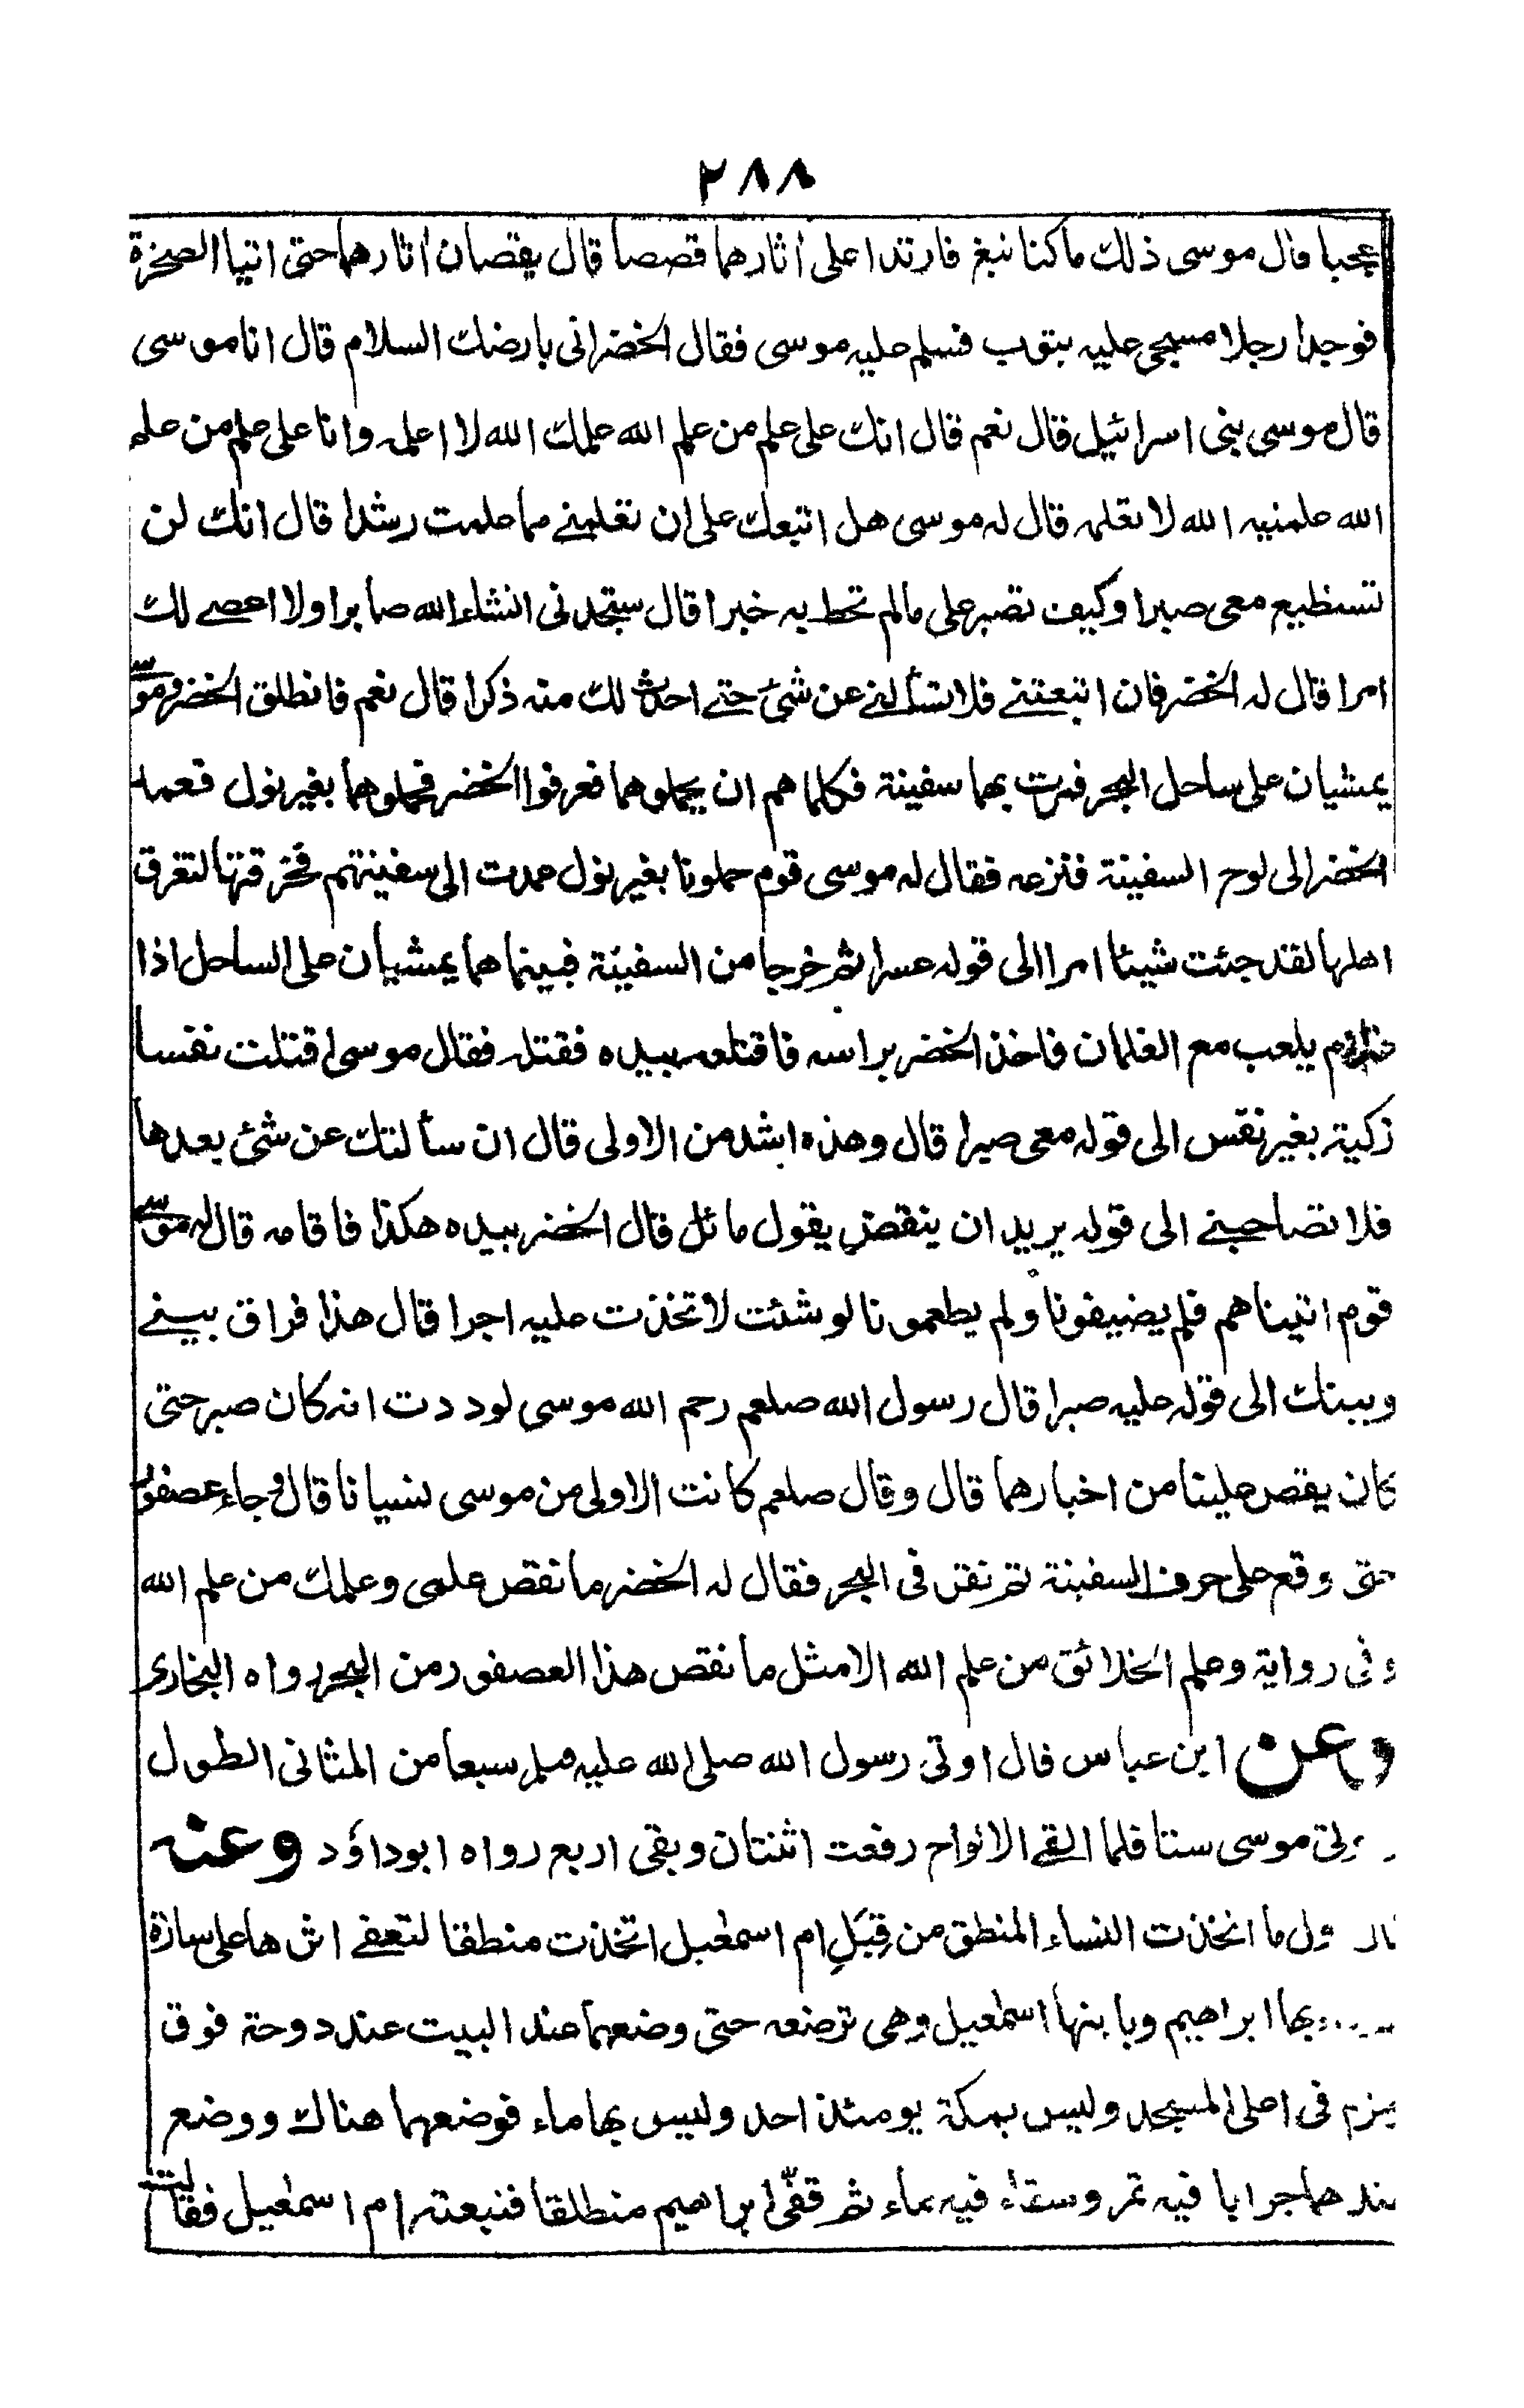 ٢٨٨
عجبا قال موسى ذلك ماكنا نبغ فارتدا على اثارهما قصصا قال يقصان اثارهما حتى اتيا الصخرة
فوجدا رجلا مسجى عليه بثوب فسلم عليه موسى فقال الخضر انى بارضك السلام قال انا موسى
قال موسى بنى اسرائيل قال نعم قال انك على علم من علم الله علمك الله لا اعلمه وانا على علم من علم
الله علمنيه الله لا تعلمه قال له موسى هل اتبعك على ان تعلمنے مما علمت رشدا قال انك لن
تستطيع معى صبرا وكيف تصبر على مالم تحط به خبرا قال ستجدنى انشاء الله صابرا ولا اعصے لك
امرا قال له الخضر فان اتبعتنے فلا تسألنے عن شئ حتے احدث لك منه ذكرا قال نعم فانطلق الخضر وموسى
يمشيان على ساحل البحر فمرت بهما سفينة فكلماهم ان يحملوهما فعرفوا الخضر فحملوهما بغير نول فعمد
الخضر الى لوح السفينة فنزعه فقال له موسى قوم حملونا بغير نول عمدت الى سفينتهم فخرقتها لتغرق
اهلها لقد جئت شيئا امرا الى قوله عسرا ثم خرجا من السفينة فبينما هما يمشيان على الساحل اذا
غلام يلعب مع الغلمان فاخذ الخضر براسه فاقتلعه بيده فقتله فقال موسى اقتلت نفسا
زكية بغير نفس الى قوله معى صبرا قال وهذه اشد من الاولى قال ان سألتك عن شئ بعدها
فلا تصاحبنے الى قوله يريد ان ينقض يقول مائل قال الخضر بيده هكذا فاقامه قال له موسى
قوم اتيناهم فلم يضيفونا ولم يطعمونا لو شئت لاتخذت عليه اجرا قال هذا فراق بينے
وبينك الى قوله عليه صبرا قال رسول الله صلعم رحم الله موسى لوددت انه كان صبر حتى
كان يقص علينا من اخبارهما قال وقال صلعم كانت الاولى من موسى نسيانا قال وجاء عصفور
حتى وقع على حرف السفينة ثم نقر فى البحر فقال له الخضر ما نقص علمى وعلمك من علم الله
وفى رواية وعلم الخلائق من علم الله الا مثل ما نقص هذا العصفور من البحر رواه البخارى
وعن ابن عباس قال اوتى رسول الله صلى الله عليه وسلم سبعا من المثانى الطول
موسى ستا فلما القے الالواح رفعت اثنتان وبقى اربع رواه ابوداؤد وعنه
ما اتخذت النساء المنطق من قِبَلِ ام اسمٰعيل اتخذت منطقا لتعفے اثرها على سارة
بها ابراهيم وبابنها اسمٰعيل وهى ترضعه حتى وضعهما عند البيت عند دوحة فوق
فى اعلى المسجد وليس بمكة يومئذ احد وليس بها ماء فوضعهما هناك ووضع
عندهما جرابا فيه تمر وسقاء فيه ماء ثم قفّٰى ابراهيم منطلقا فتبعته ام اسمٰعيل فقالت